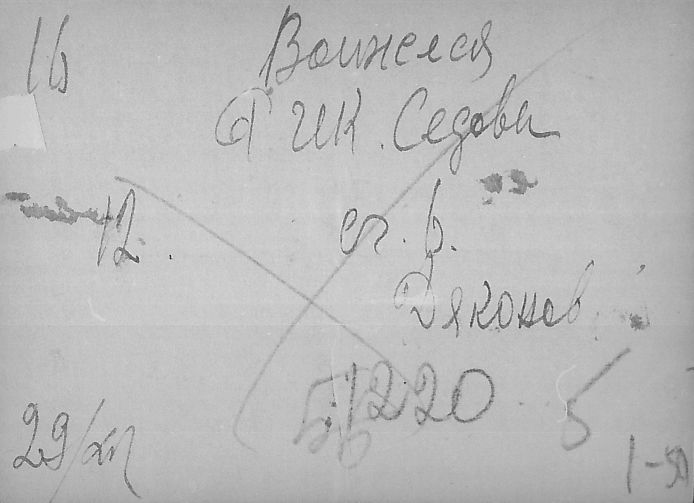 16
Воинелся
ГИК. Седова
12.
ст. в.
Дяконов
1220 5
29/XII 1-50